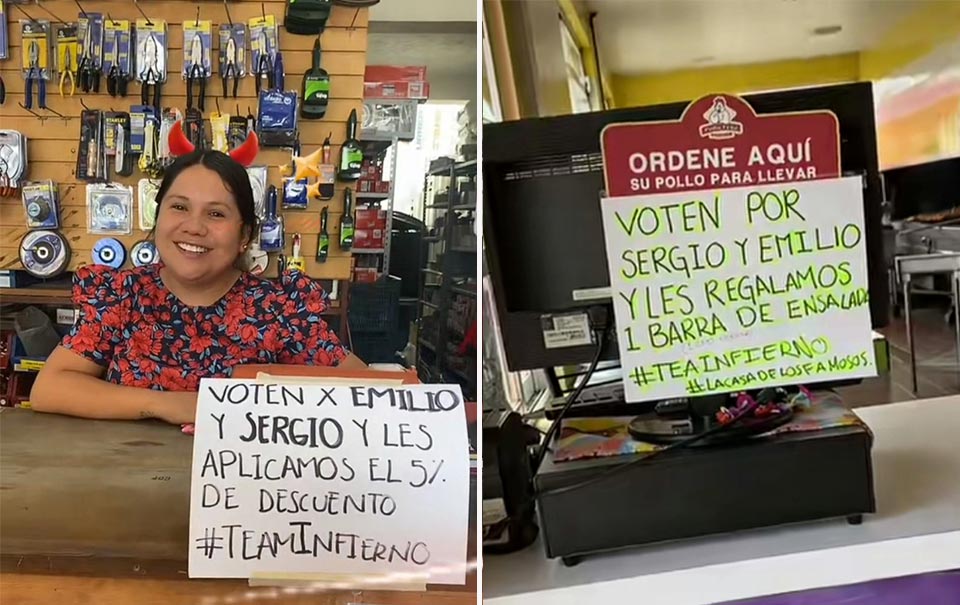 STANLEY
VOTEN X EMILIO
Y SERGIO Y LES
APLICAMOS EL 5%
DE DESCUENTO
#TEAMINFIERNO
ORDENE AQUÍ
SU POLLO PARA LLEVAR
VOTEN POR
SERGIO Y EMILIO
Y LES REGALAMOS
1 BARRA DE ENSALADA
#TEAINFIERNO
#LACASADELOSFAMOSOS.